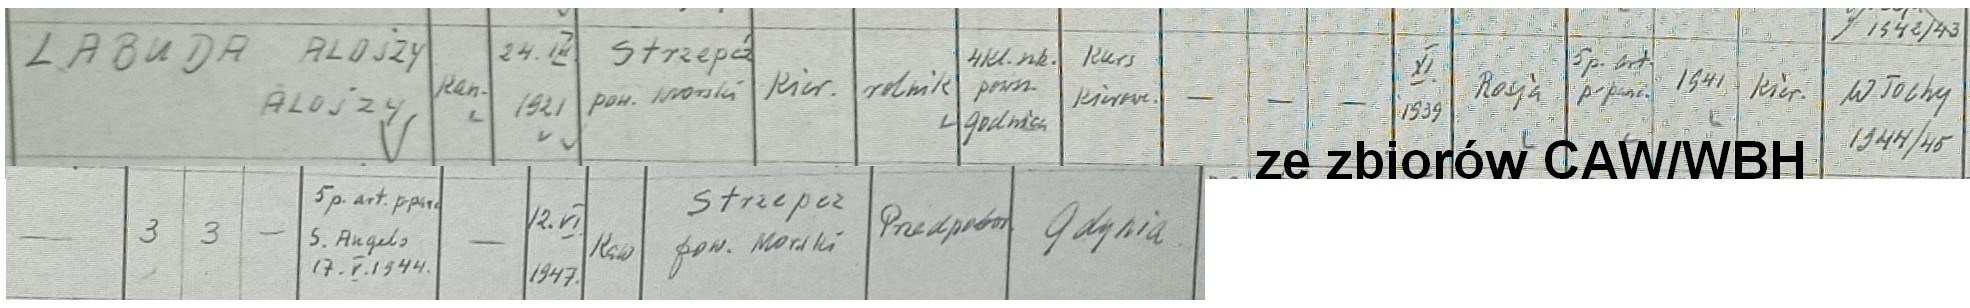 1942/43
LABUDA ALOJZY
ALOJZY
kan.
24. III.
1921
Strzepcz
pow. Morski
kier.
rolnik
4kl. szk.
powsz.
Kurs
kierow.
— — —
XI.
1939
Rosja
5 p. art.
p-panc.
1941
kier.
Włochy
1944/45
ze zbiorów CAW/WBH
— 3 3 —
5 p. art. p-panc
S. Angelo
17. V. 1944.
—
12. VI.
1947.
Kaw
Strzepcz
pow. Morski
Przedpobor.
Gdynia.